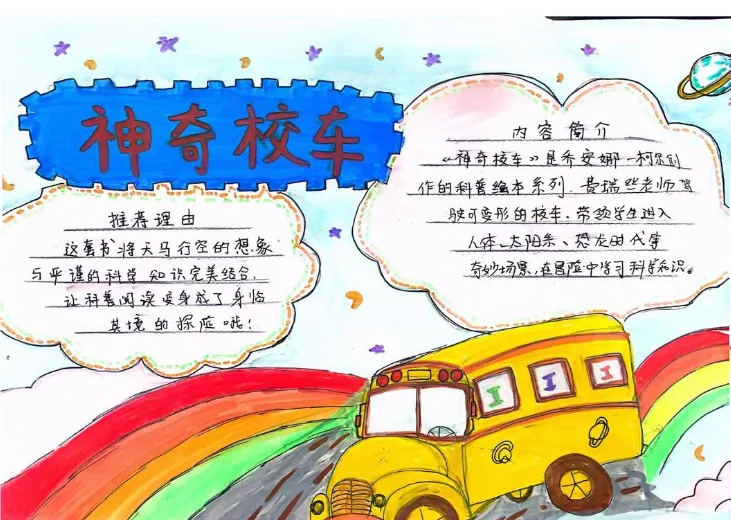 神奇校车
推荐理由
这套书将天马行空的想象
与严谨的科学知识完美结合,
让科普阅读变身成了身临
其境的探险哦!
内容简介
《神奇校车》是乔安娜·柯尔创
作的科普绘本系列.费瑞丝老师驾
驶可变形的校车.带领学生进入
人体、太阳系、恐龙时代等
奇妙场景,在冒险中学习科学知识。